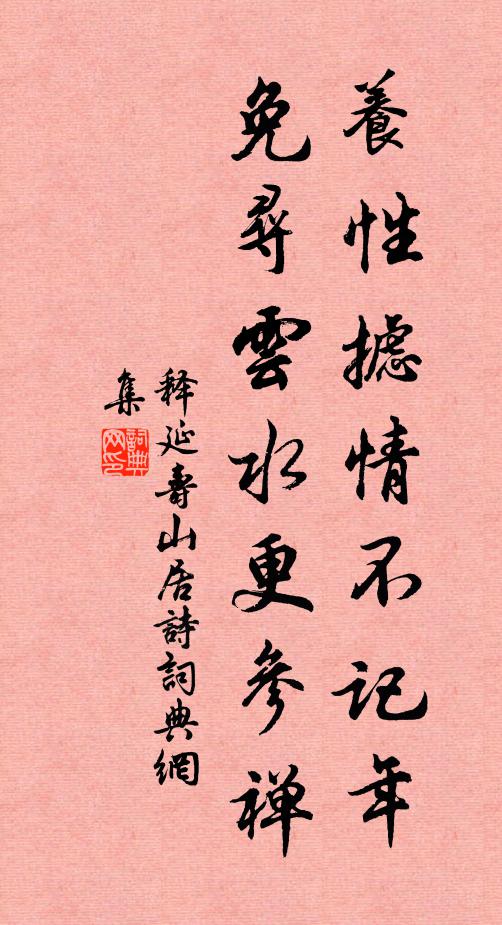 養性摅情不记年
免尋雲水更參禅
释延壽山居詩詞典網
集
詞典网印